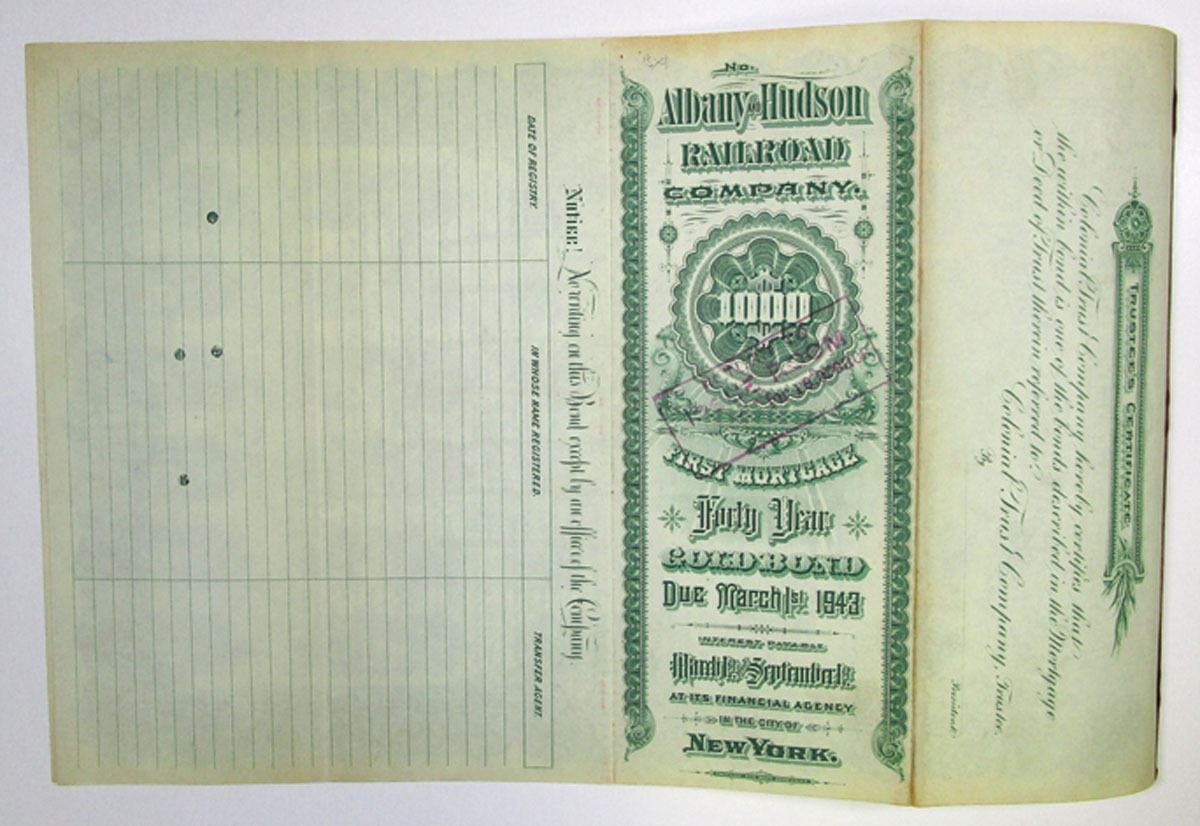 DATE OF REGISTRY.
IN WHOSE NAME REGISTERED.
TRANSFER AGENT.
Notice! No writing on this Bond except by an officer of the Company.
No.
Albany and Hudson
RAILROAD
COMPANY.
1000
FIRST MORTGAGE
Forty Year
GOLD BOND
Due March 1st 1943
INTEREST PAYABLE
March 1st and September 1st
AT ITS FINANCIAL AGENCY
IN THE CITY OF
NEW YORK.
TRUSTEE'S CERTIFICATE
Colonial Trust Company hereby certifies that
the within bond is one of the bonds described in the Mortgage
or Deed of Trust therein referred to.
Colonial Trust Company, Trustee.
By
President.